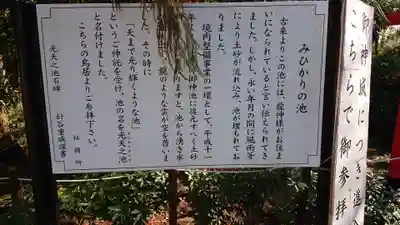 みひかりの池
古来よりこの池には、龍神様がお住ま
いになられていると言い伝えられてき
ました。しかし、永い年月の間に風雨等
により土砂が流れ込み、池が埋もれてお
りました。
境内整備事業の一環として、平成十一
年に御神池に復元すべく土砂
りますと、池から湧き水
龍のような雲が空を覆いま
した。その時に
「天まで光り輝くような池」
というご神託を受け、池の名を光天之池
と名付けました。
こちらの鳥居よりご参拝下さい。
社務所
光天之池石碑
御神域につき進入
こちらで御参拝